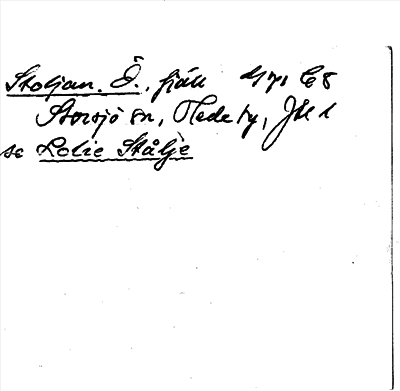 Stoljan. Ö., fjäll 471 C8
Storsjö sn, Hede ty, Jtl
se Lolie Stålje